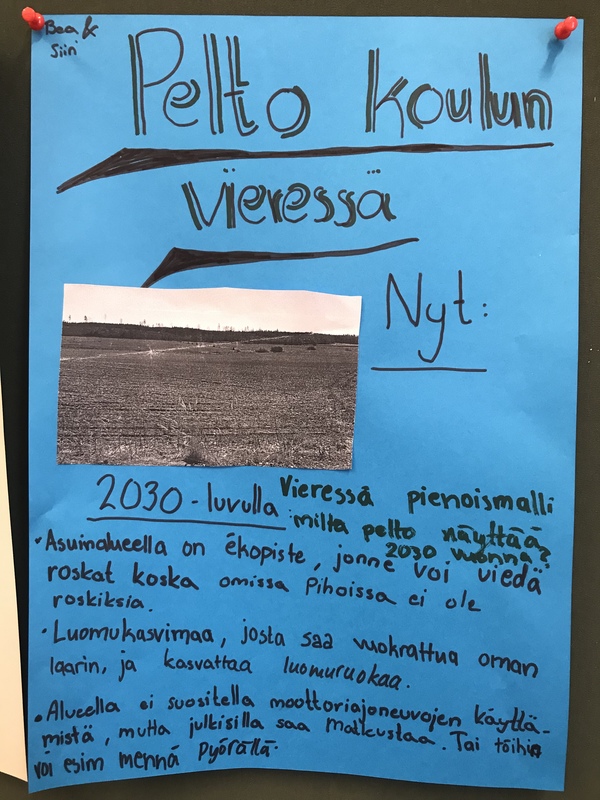 Bea &
Siiri
Pelto koulun
vieressä
Nyt:
2030-luvulla
Vieressä pienoismalli
miltä pelto näyttää
2030 vuonna?
•Asuinalueella on ekopiste, jonne voi viedä
roskat koska omissa Pihoissa ei ole
roskiksia.
•Luomukasvimaa, josta saa vuokrattua oman
laarin, ja kasvattaa luomuruokaa.
•Alueella ei suositella moottoriajoneuvojen käyttä-
mistä, mutta julkisilla saa matkustaa. Tai töihin
voi esim mennä pyörällä.